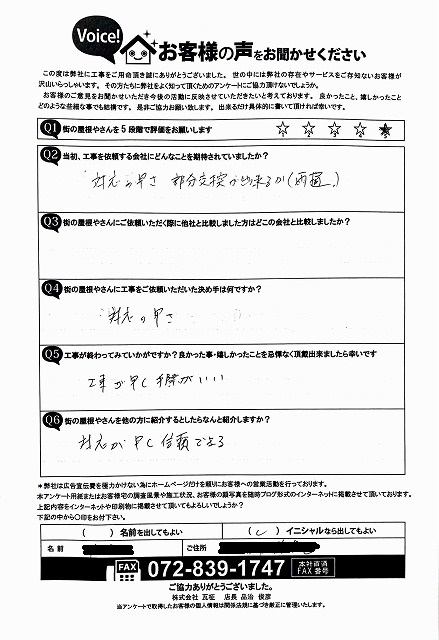 Voice!
お客様の声をお聞かせください
この度は弊社に工事をご用命頂き誠にありがとうございました。 世の中には弊社の存在やサービスをご存知ないお客様が
沢山いらっしゃいます。その方たちに弊社をよく知って頂くためのアンケートにご協力頂けないでしょうか。
お客様のご意見をお聞かせいただき今後の活動に反映させていただきたいと考えております。良かったこと、嬉しかったこと
どのような些細な事でも結構です。 是非ご協力お願い致します。 出来るだけ具体的に書いて頂ければ幸いです。
Q1 街の屋根やさんを5段階で評価をお願いします
1 2 3 4 5
Q2 当初、工事を依頼する会社にどんなことを期待されていましたか?
対応の早さ 部分交換が出来るか(雨樋)
Q3 街の屋根やさんにご依頼いただく際に他社と比較しました方はどこの会社と比較しましたか?
Q4 街の屋根やさんに工事をご依頼いただいた決め手は何ですか?
対応の早さ
Q5 工事が終わってみていかがですか?良かった事・嬉しかったことを忌憚なく頂戴出来ましたら幸いです
工事が早く手際がいい
Q6 街の屋根やさんを他の方に紹介するとしたらなんと紹介しますか?
対応が早く信頼できる
＊弊社は広告宣伝費を極力かけない為にホームページだけを頼りにお客様への営業活動を行っております。
本アンケート用紙またはお客様宅の調査風景や施工状況、お客様の顔写真を随時ブログ形式のインターネットに掲載させて頂いております。
上記内容をインターネットや印刷物に掲載させて頂いてもよろしいでしょうか?
下記の中から〇印をお付下さい。
( )名前を出してもよい (○)イニシャルなら出してもよい
名前 ご住所
FAX 072-839-1747 本社直通 FAX番号
ご協力ありがとうございました。
株式会社 瓦征 店長 品治 俊彦
当アンケートで取得したお客様の個人情報は関係法規に基づき厳正に管理いたします。